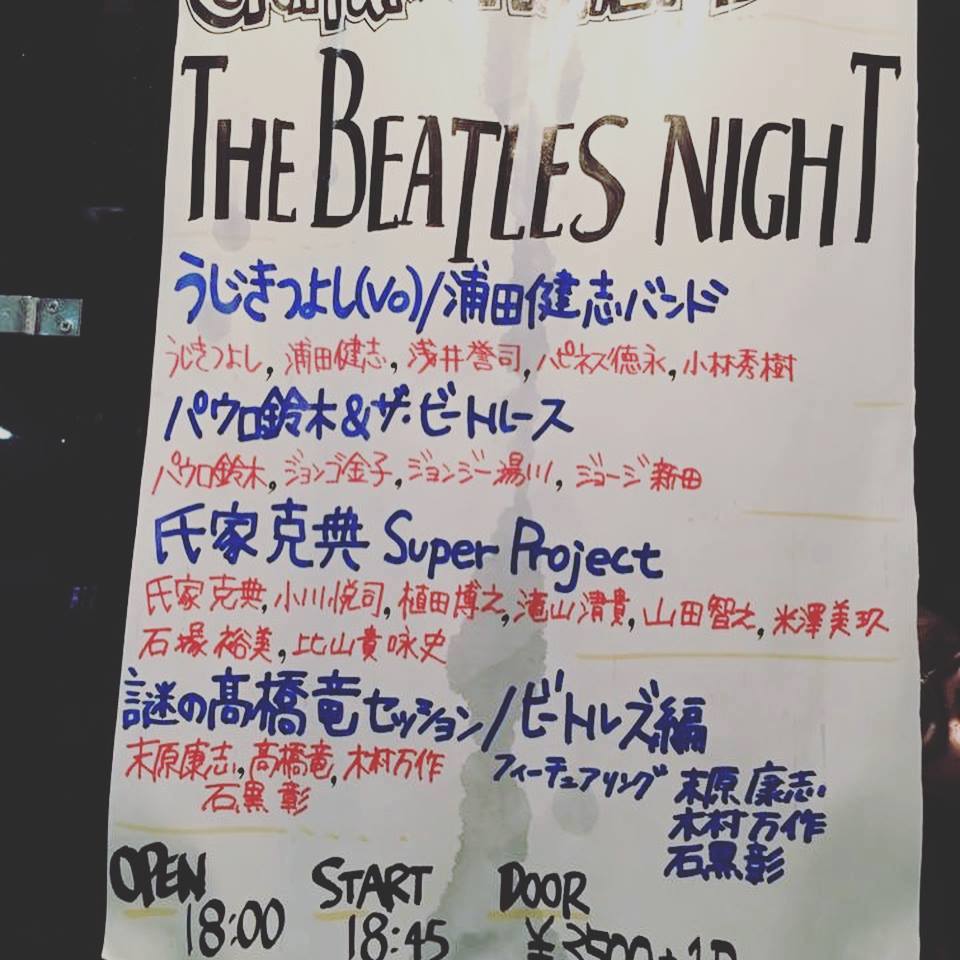 THE BEATLES NIGHT
うじきつよし(Vo)/浦田健志バンド
うじきつよし, 浦田健志, 浅井誉司, ハピネス徳永, 小林秀樹
パウロ鈴木&ザ・ビートルース
パウロ鈴木, ジョンゴ金子, ジョンジー湯川, ジョージ新田
氏家克典 Super Project
氏家克典, 小川悦司, 植田博之, 滝山清貴, 山田智之, 米澤美玖
石塚裕美, 比山貴咏史
謎の髙橋竜セッション/ビートルズ編
末原康志, 髙橋竜, 木村万作
石黒彰
フィーチュアリング 末原康志
木村万作
石黒彰
OPEN START DOOR
18:00 18:45 ¥3500+1D